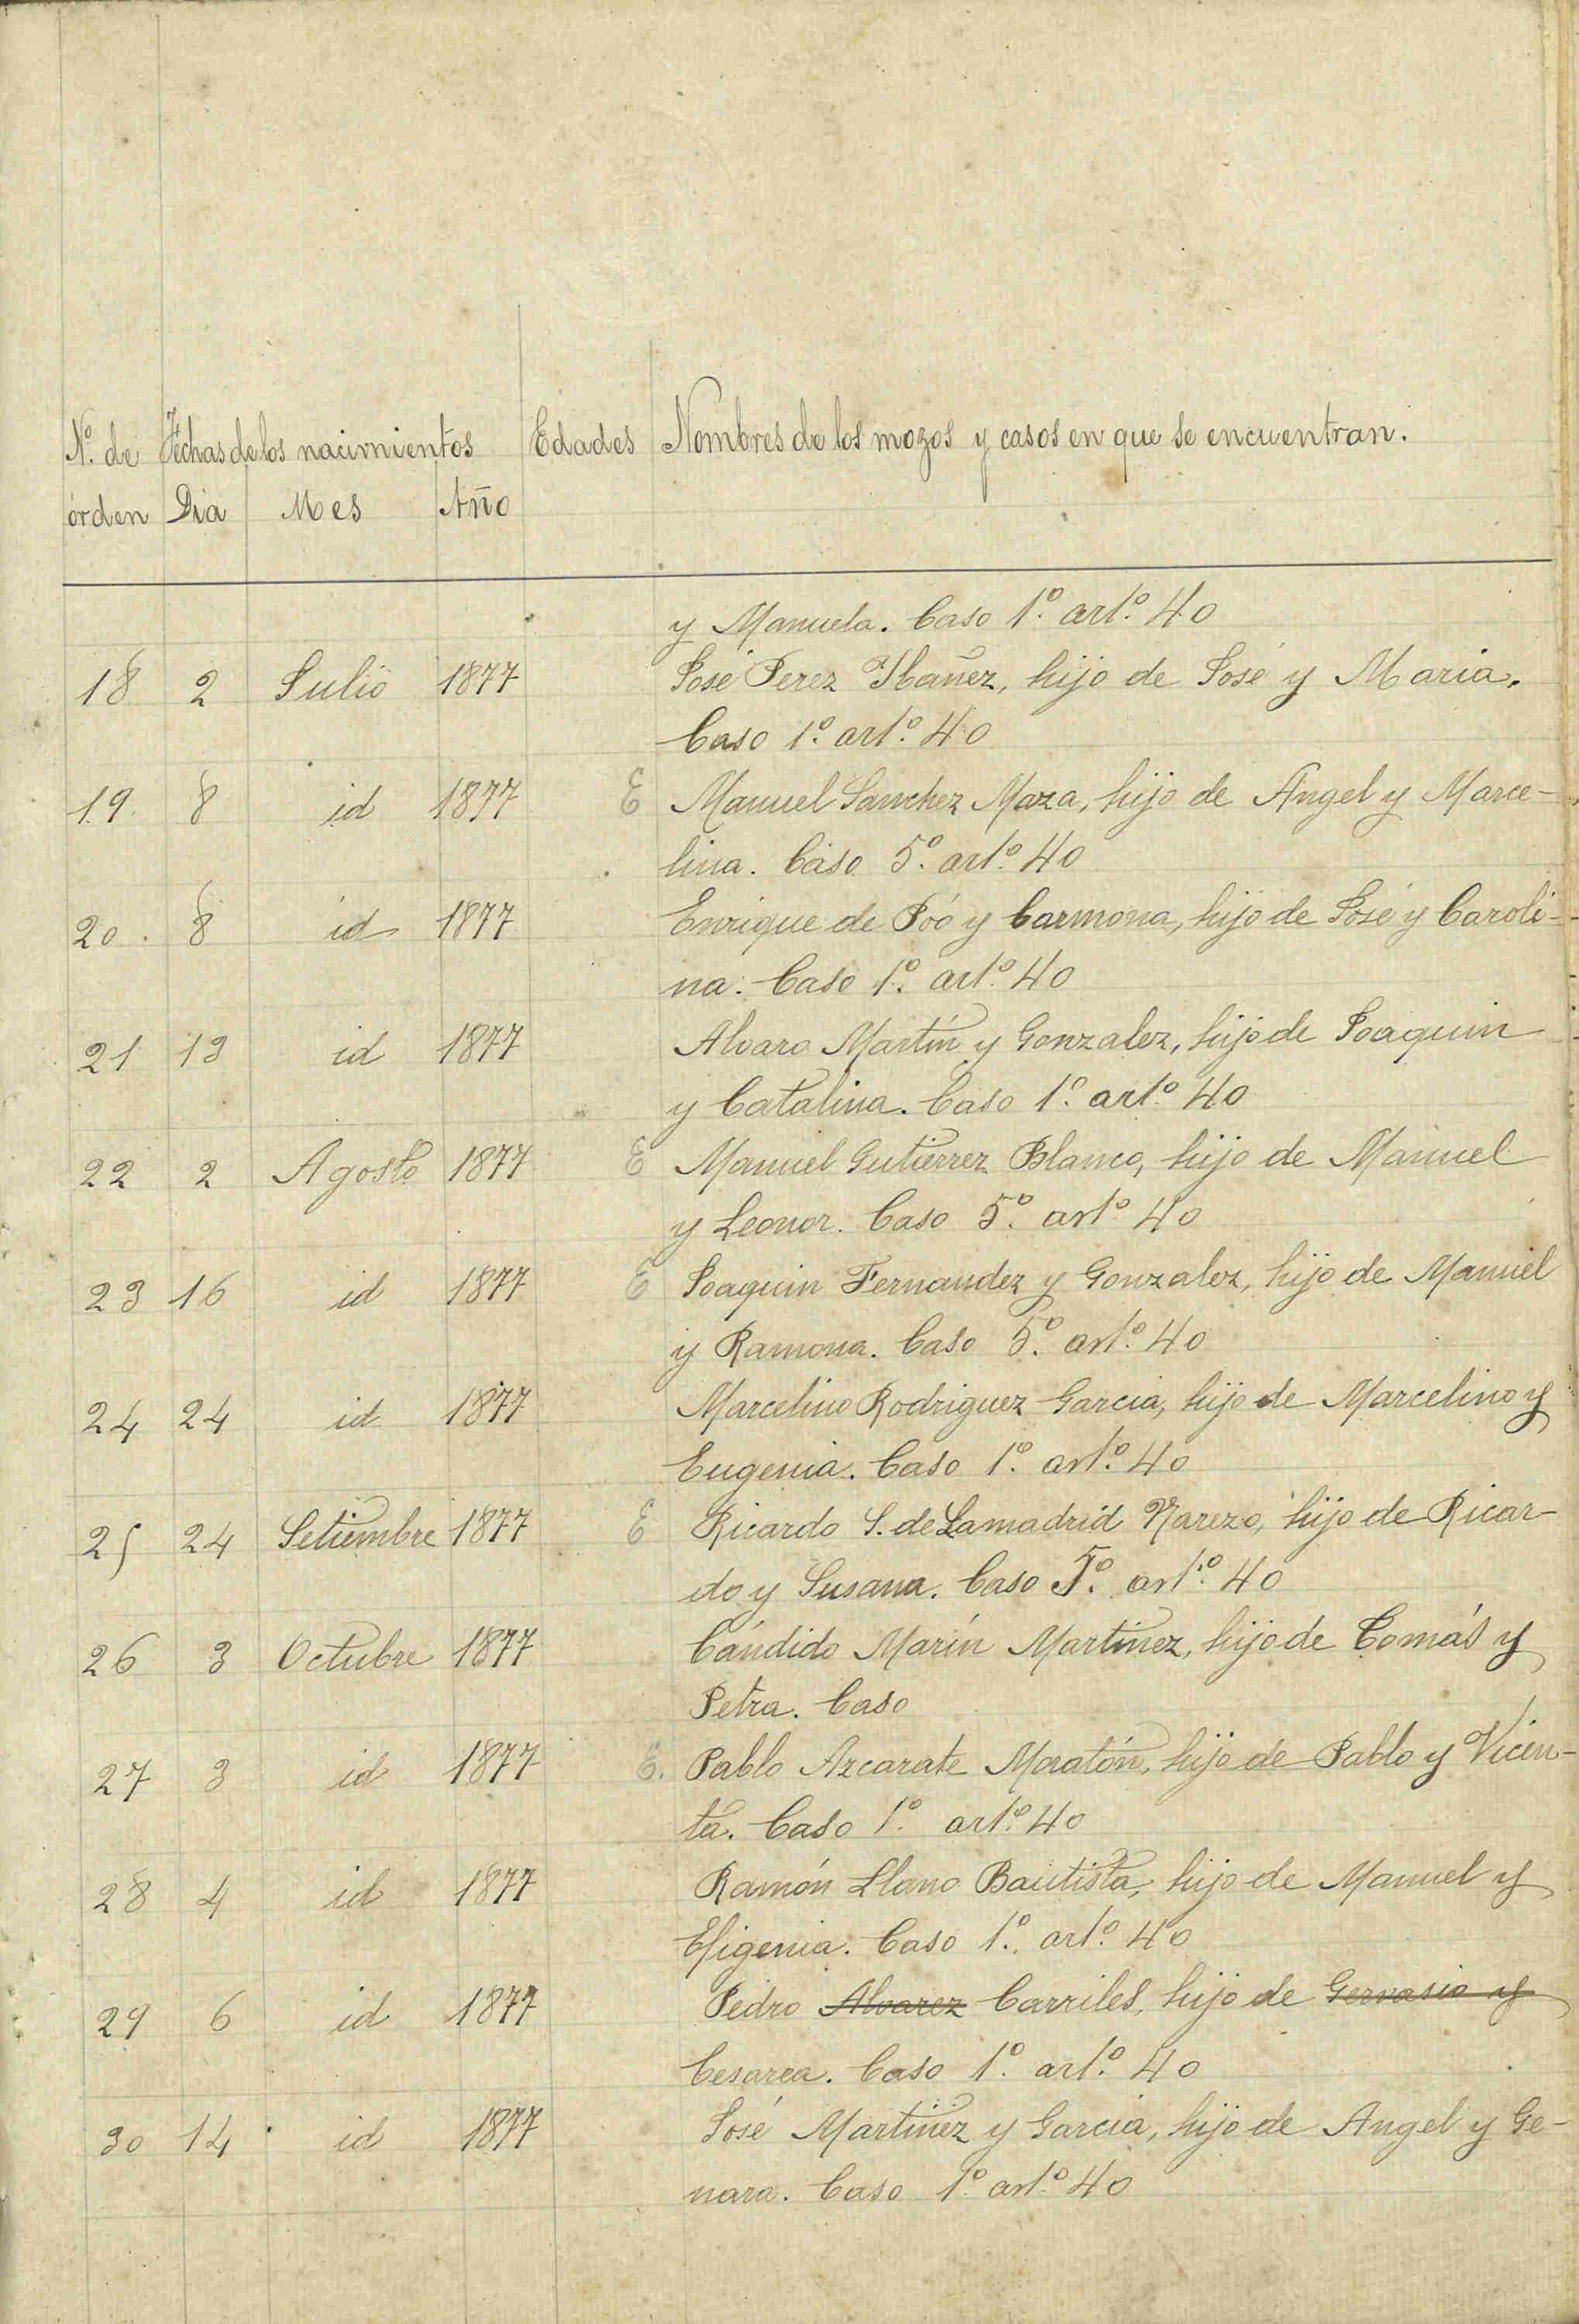 Nº. de Fechas de los nacimientos Edades Nombres de los mozos y casos en que se encuentran.
órden Dia Mes Año
y Manuela. Caso 1º. artº. 40
18 2 Julio 1877 José Perez Ybañez, hijo de José y Maria.
Caso 1º. artº. 40
19. 8 id 1877 E Manuel Sanchez Maza, hijo de Angel y Marce-
lina. Caso 5º. artº. 40
20. 8 id 1877 Enrique de Póo y Carmona, hijo de José y Caroli-
na. Caso 1º. artº. 40
21 13 id 1877 Alvaro Martín y Gonzalez, hijo de Joaquin
y Catalina. Caso 1º. artº. 40
22 2 Agosto 1877 E Manuel Gutierrez Blanco, hijo de Manuel
y Leonor. Caso 5º. artº. 40
23 16 id 1877 E Joaquin Fernandez y Gonzalez, hijo de Manuel
y Ramona. Caso 5º. artº. 40
24 24 id 1877 Marcelino Rodriguez Garcia, hijo de Marcelino y
Eugenia. Caso 1º. artº. 40
25 24 Setiembre 1877 E Ricardo S. de Lamadrid Narezo, hijo de Ricar-
do y Susana. Caso 5º. artº. 40
26 3 Octubre 1877 Cándido Marín Martinez, hijo de Tomás y
Petra. Caso
27 3 id 1877 E. Pablo Azcarate Moratón, hijo de Pablo y Vicen-
ta. Caso 1º. artº. 40
28 4 id 1877 Ramón Llano Bautista, hijo de Manuel y
Efigenia. Caso 1º. artº. 40
29 6 id 1877 Pedro Alvarez Carriles, hijo de Gervasio y
Cesarea. Caso 1º. artº. 40
30 14 id 1877 José Martinez y Garcia, hijo de Angel y Ge-
nara. Caso 1º. artº. 40